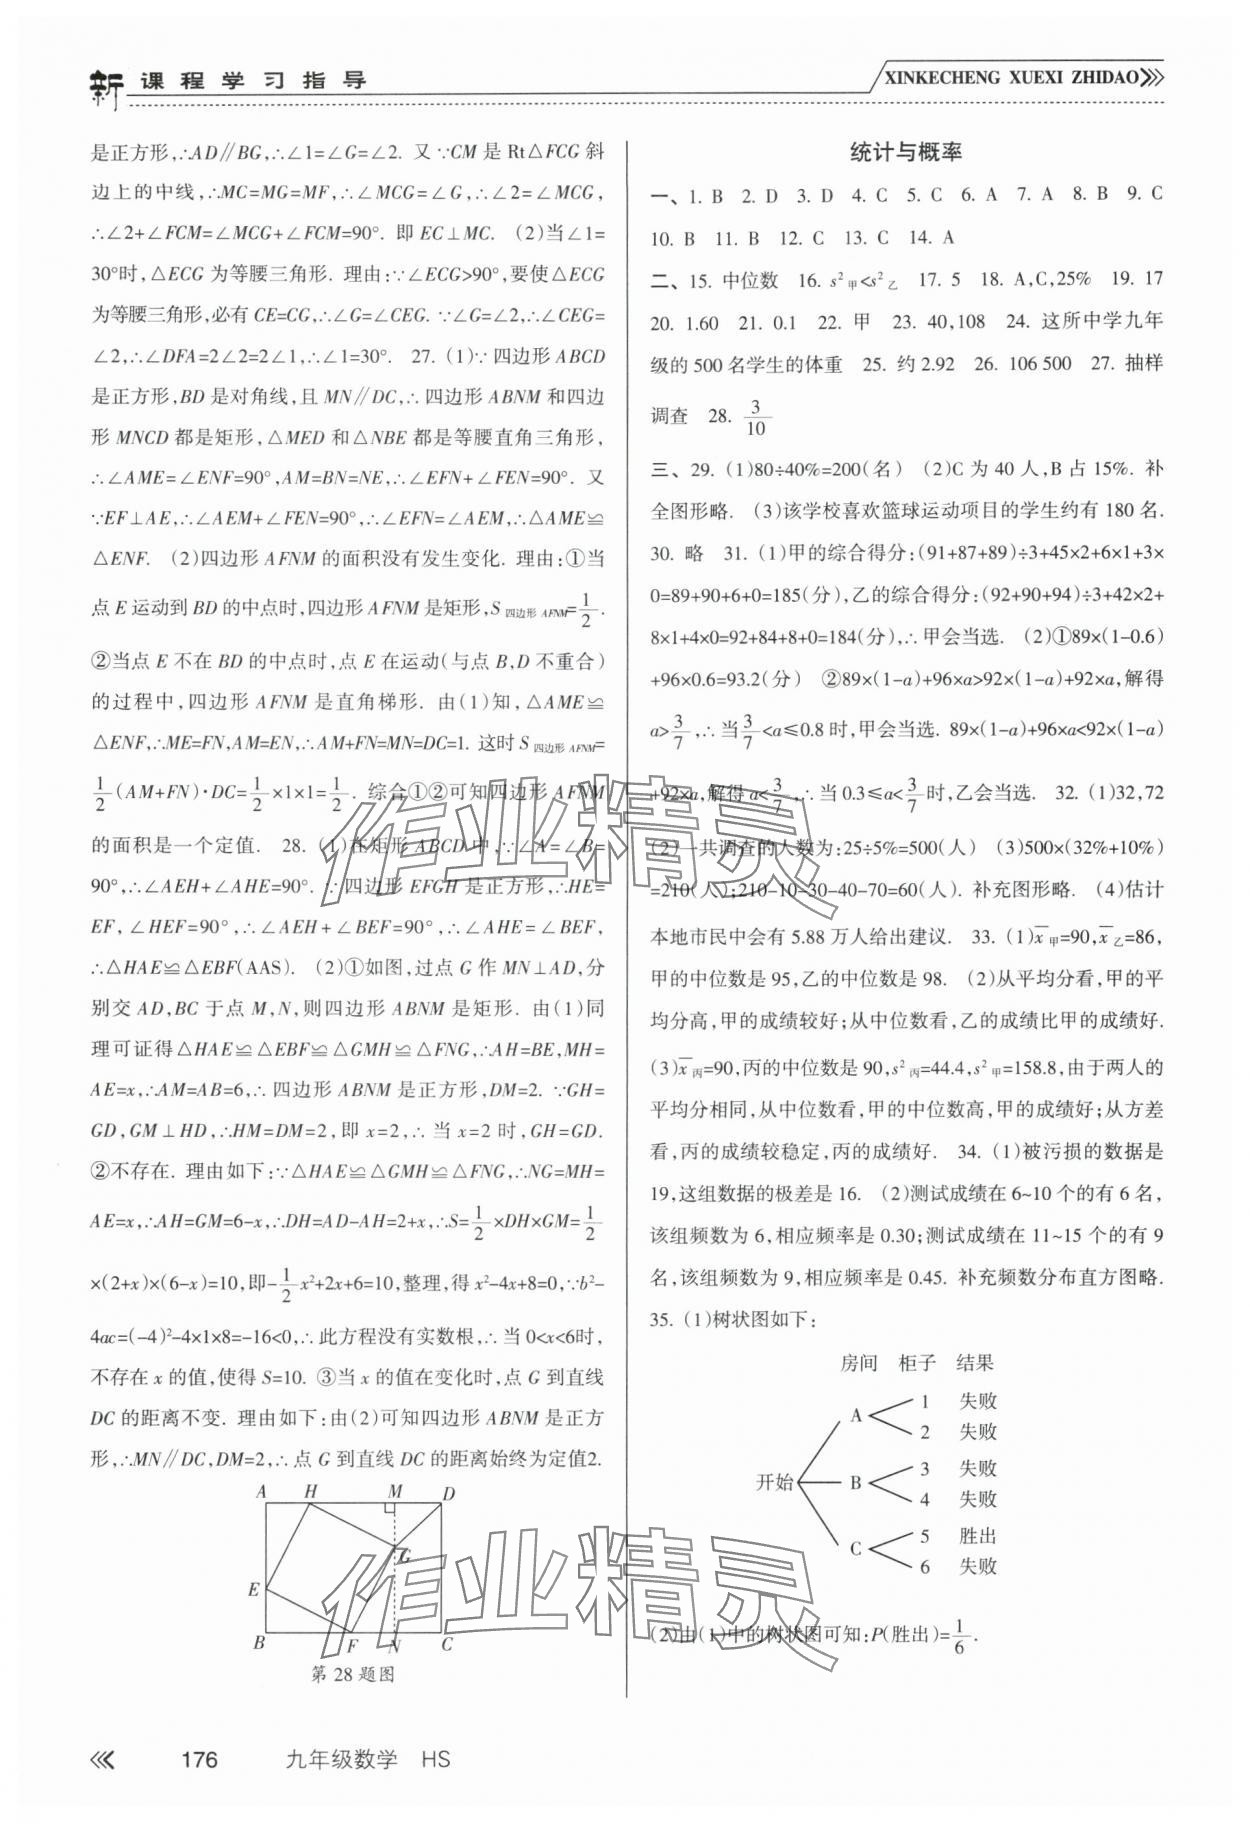 新课程学习指导
XINKECHENG XUEXI ZHIDAO
是正方形,∴AD∥BG,∴∠1=∠G=∠2. 又∵CM 是 Rt△FCG 斜
边上的中线,∴MC=MG=MF,∴∠MCG=∠G,∴∠2=∠MCG,
∴∠2+∠FCM=∠MCG+∠FCM=90°. 即 EC⊥MC. (2)当∠1=
30°时,△ECG 为等腰三角形. 理由:∵∠ECG>90°,要使△ECG
为等腰三角形,必有 CE=CG,∴∠G=∠CEG. ∵∠G=∠2,∴∠CEG=
∠2,∴∠DFA=2∠2=2∠1,∴∠1=30°. 27. (1)∵四边形 ABCD
是正方形,BD 是对角线,且 MN∥DC,∴四边形 ABNM 和四边
形 MNCD 都是矩形,△MED 和△NBE 都是等腰直角三角形,
∴∠AME=∠ENF=90°,AM=BN=NE,∴∠EFN+∠FEN=90°. 又
∵EF⊥AE,∴∠AEM+∠FEN=90°,∴∠EFN=∠AEM,∴△AME≌
△ENF. (2)四边形 AFNM 的面积没有发生变化. 理由:①当
点 E 运动到 BD 的中点时,四边形 AFNM 是矩形,S四边形AFNM=1/2.
②当点 E 不在 BD 的中点时,点 E 在运动(与点 B,D 不重合)
的过程中,四边形 AFNM 是直角梯形. 由(1)知,△AME≌
△ENF,∴ME=FN,AM=EN,∴AM+FN=MN=DC=1. 这时 S四边形AFNM=
1/2(AM+FN)·DC=1/2×1×1=1/2. 综合①②可知四边形 AFNM
的面积是一个定值. 28. (1)在矩形 ABCD 中,∵∠A=∠B=
90°,∴∠AEH+∠AHE=90°. ∵四边形 EFGH 是正方形,∴HE=
EF,∠HEF=90°,∴∠AEH+∠BEF=90°,∴∠AHE=∠BEF,
∴△HAE≌△EBF(AAS). (2)①如图,过点 G 作 MN⊥AD,分
别交 AD,BC 于点 M,N,则四边形 ABNM 是矩形. 由(1)同
理可证得△HAE≌△EBF≌△GMH≌△FNG,∴AH=BE,MH=
AE=x,∴AM=AB=6,∴四边形 ABNM 是正方形,DM=2. ∵GH=
GD,GM⊥HD,∴HM=DM=2,即 x=2,∴当 x=2 时,GH=GD.
②不存在. 理由如下:∵△HAE≌△GMH≌△FNG,∴NG=MH=
AE=x,∴AH=GM=6-x,∴DH=AD-AH=2+x,∴S=1/2×DH×GM=1/2
×(2+x)×(6-x)=10,即-1/2x²+2x+6=10,整理,得 x²-4x+8=0,∵b²-
4ac=(-4)²-4×1×8=-16<0,∴此方程没有实数根,∴当 0<x<6时,
不存在 x 的值,使得 S=10. ③当 x 的值在变化时,点 G 到直线
DC 的距离不变. 理由如下:由(2)可知四边形 ABNM 是正方
形,∴MN∥DC,DM=2,∴点 G 到直线 DC 的距离始终为定值2.
A H M D
G
E
B F N C
第 28 题图
统计与概率
一、1. B 2. D 3. D 4. C 5. C 6. A 7. A 8. B 9. C
10. B 11. B 12. C 13. C 14. A
二、15. 中位数 16. s²甲<s²乙 17. 5 18. A,C,25% 19. 17
20. 1.60 21. 0.1 22. 甲 23. 40,108 24. 这所中学九年
级的 500 名学生的体重 25. 约 2.92 26. 106 500 27. 抽样
调查 28. 3/10
三、29. (1)80÷40%=200(名) (2)C 为 40 人,B 占 15%. 补
全图形略. (3)该学校喜欢篮球运动项目的学生约有 180 名.
30. 略 31. (1)甲的综合得分:(91+87+89)÷3+45×2+6×1+3×
0=89+90+6+0=185(分),乙的综合得分:(92+90+94)÷3+42×2+
8×1+4×0=92+84+8+0=184(分),∴甲会当选. (2)①89×(1-0.6)
+96×0.6=93.2(分) ②89×(1-a)+96×a>92×(1-a)+92×a,解得
a>3/7,∴当3/7<a≤0.8 时,甲会当选. 89×(1-a)+96×a<92×(1-a)
+92×a,解得 a<3/7,∴当 0.3≤a<3/7时,乙会当选. 32. (1)32,72
(2)一共调查的人数为:25÷5%=500(人) (3)500×(32%+10%)
=210(人);210-10-30-40-70=60(人). 补充图形略. (4)估计
本地市民中会有 5.88 万人给出建议. 33. (1)x̄甲=90,x̄乙=86,
甲的中位数是 95,乙的中位数是 98. (2)从平均分看,甲的平
均分高,甲的成绩较好;从中位数看,乙的成绩比甲的成绩好.
(3)x̄丙=90,丙的中位数是 90,s²丙=44.4,s²甲=158.8,由于两人的
平均分相同,从中位数看,甲的中位数高,甲的成绩好;从方差
看,丙的成绩较稳定,丙的成绩好. 34. (1)被污损的数据是
19,这组数据的极差是 16. (2)测试成绩在 6~10 个的有 6 名,
该组频数为 6,相应频率是 0.30;测试成绩在 11~15 个的有 9
名,该组频数为 9,相应频率是 0.45. 补充频数分布直方图略.
35. (1)树状图如下:
房间 柜子 结果
A 1 失败
2 失败
开始 B 3 失败
4 失败
C 5 胜出
6 失败
(2)由(1)中的树状图可知:P(胜出)=1/6.
作业精灵
作业精灵
176 九年级数学 HS